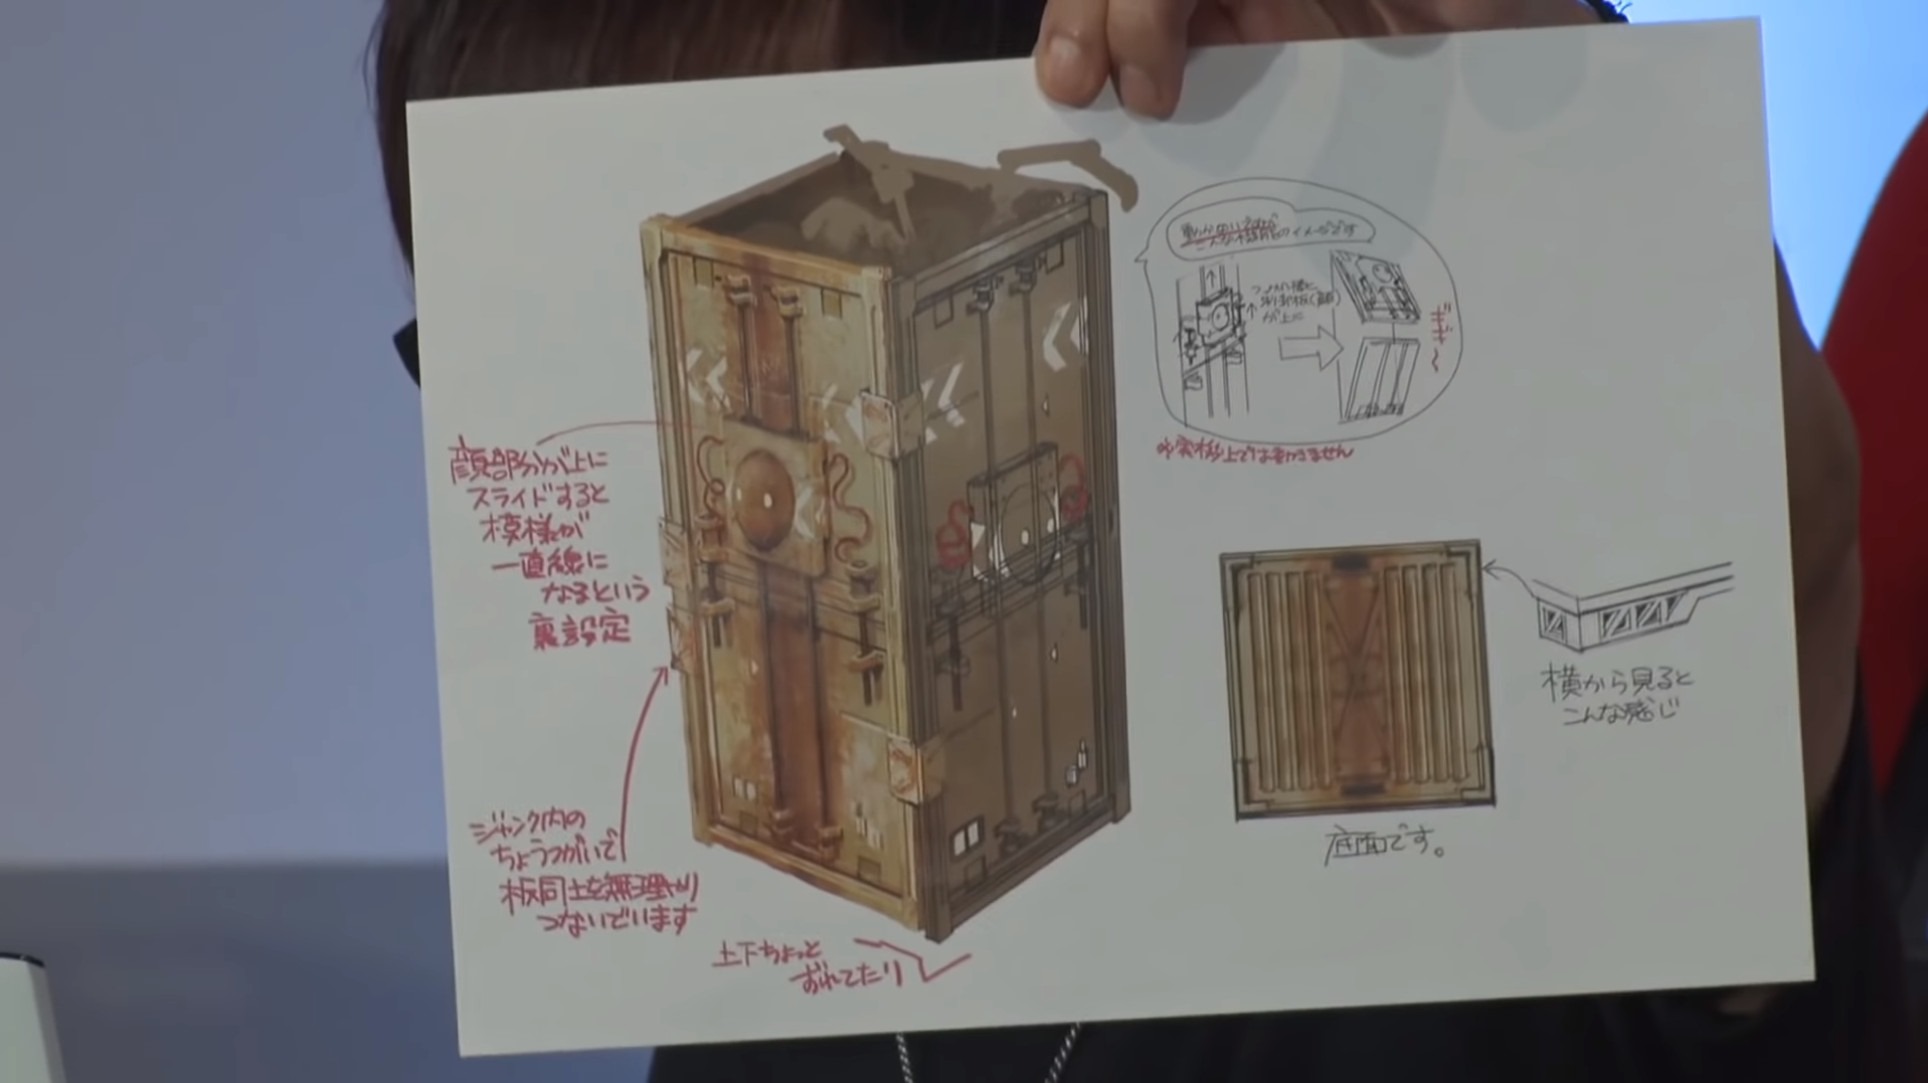 こんな構造のイメージです
が上に
ギギ〜
※実機上では動きません
顔部分が上に
スライドすると
模様が
一直線に
なるという
裏設定
横から見ると
こんな感じ
ジャンク内の
ちょうつがいで
板同士を無理やり
つないでいます
底面です。
上下ちょっと
ずれてたり